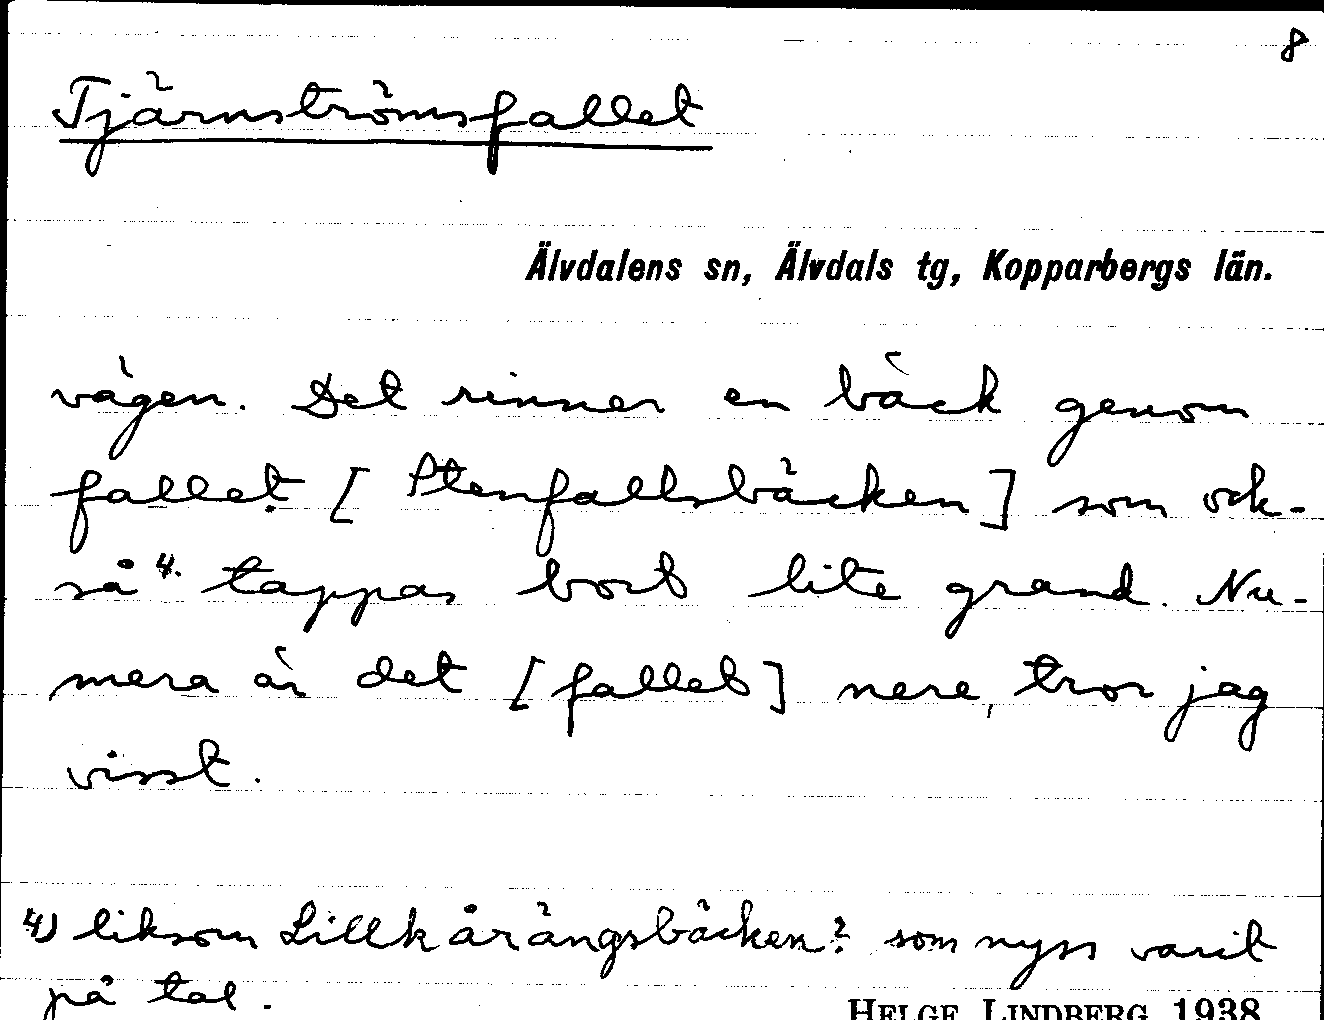 8
Tjärnströmsfallet
Älvdalens sn, Älvdals tg, Kopparbergs län.
vägen. Det rinner en bäck genom
fallet [Stenfallsbäcken] som ock-
så 4. tappas bort lite grand. Nu-
mera är det [fallet] nere, tror jag
visst.
4) liksom Lillkårängsbäcken? som nyss varit
på tal.
HELGE LINDBERG 1938